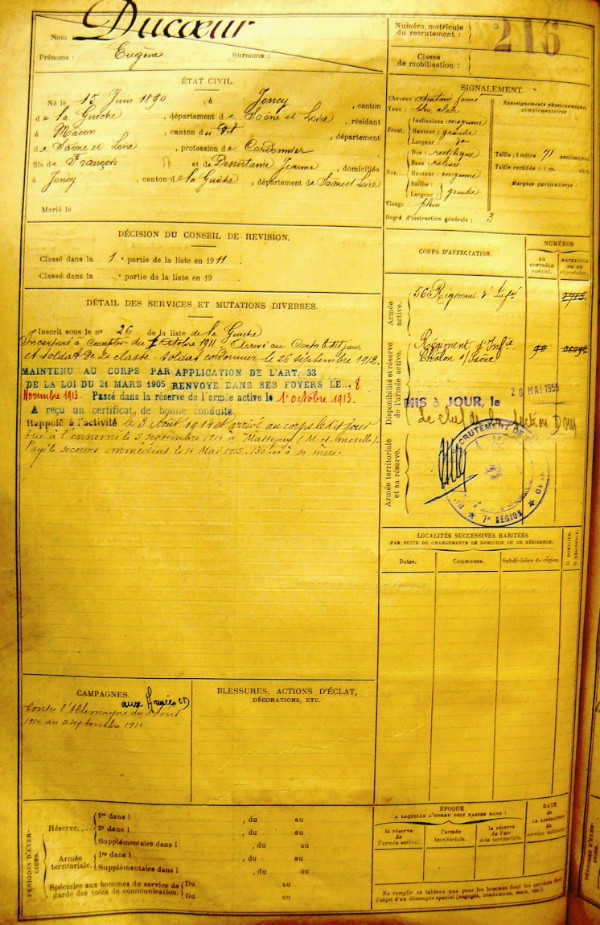 Nom : Ducœur
Prénoms : Eugène Surnoms :
Numéro matricule
du recrutement : 216
Classe
de mobilisation :
ÉTAT CIVIL.
Né le 15 Juin 1890, à Joncy, canton
de la Guiche, département de Saône et Loire, résidant
à Mâcon, canton de dt, département
de Saône et Loire, profession de Cordonnier
fils de François et de Jeanne, domiciliés
à Joncy, canton de la Guiche, département de Saône et Loire
Marié le
SIGNALEMENT.
Cheveux
Yeux
Renseignements physionomiques
complémentaires :
Front. Inclinaison : moyenne
Hauteur : grande
Largeur :
Nez. Dos : rectiligne
Base :
Hauteur : moyenne
Saillie :
Largeur : grande
Visage : plein
Taille : 1 mètre 71 centimètres.
Taille rectifiée : 1 m. cent.
Marques particulières :
Degré d'instruction générale : 3
DÉCISION DU CONSEIL DE REVISION.
Classé dans la 1e partie de la liste en 1911
Classé dans la e partie de la liste en 19
CORPS D'AFFECTATION.
NUMÉROS
Armée
active.
56e Régiment d'Infie
Disponibilité et réserve
de l'armée active.
Régiment d'Infie
Chalon s/Saône
Armée territoriale
et sa réserve.
MIS À JOUR, le 20 MAI 1955
RECRUTEMENT DE
7e RÉGION
DÉTAIL DES SERVICES ET MUTATIONS DIVERSES.
Inscrit sous le n° 26 de la liste de la Guiche
Incorporé à compter du Octobre 1911 Arrivé au Corps ledit jour
et soldat de 2e classe. Soldat cordonnier le 26 septembre 1912.
MAINTENU AU CORPS PAR APPLICATION DE L'ART. 33
DE LA LOI DU 21 MARS 1905 RENVOYÉ DANS SES FOYERS LE 8
Novembre 1913. Passé dans la réserve de l'armée active le 1er octobre 1913.
A reçu un certificat, de bonne conduite.
Rappelé à l'activité le 3 Août 1914 et arrivé au corps ledit jour
Tué à l'ennemi le 5 septembre 1914 à (M. et Moselle).
Payé le secours immédiat le 14 Mai 1915, 150 frs à sa mère.
LOCALITÉS SUCCESSIVES HABITÉES
PAR SUITE DE CHANGEMENTS DE DOMICILE OU DE RÉSIDENCE.
Dates. Communes. Subdivision de région.
CAMPAGNES.
aux Armées
Contre l'Allemagne du 3 Août
1914 au 5 septembre 1914
BLESSURES, ACTIONS D'ÉCLAT,
DÉCORATIONS, ETC.
PÉRIODES D'EXERCICES.
Réserve...
1re dans l , du au
2e dans l , du au
Supplémentaire dans l , du au
Armée
territoriale.
1re dans l , du au
Supplémentaire dans l , du au
Spéciales aux hommes du service de
garde des voies de communication.
Du au
Du au
ÉPOQUE
À LAQUELLE L'HOMME DOIT PASSER DANS :
la réserve
de l'armée active.
l'armée
territoriale.
la réserve
de l'armée territoriale.
DATE
DE LA LIBÉRATION
du service militaire.
Ne remplir ce tableau que pour les hommes dont les services font
l'objet d'un décompte spécial (engagés, condamnés, omis, etc.).